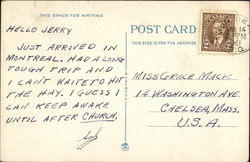 THIS SPACE FOR WRITING
POST CARD
THIS SIDE IS FOR THE ADDRESS
HELLO JERRY
JUST ARRIVED IN
MONTREAL. HAD A LONG
TOUGH TRIP AND
I CAN'T WAIT TO HIT
THE HAY. I GUESS I
CAN KEEP AWAKE
UNTIL AFTER CHURCH.
MISS GRACE MACK
14 WASHINGTON AVE.
CHELSEA, MASS.
U.S.A.